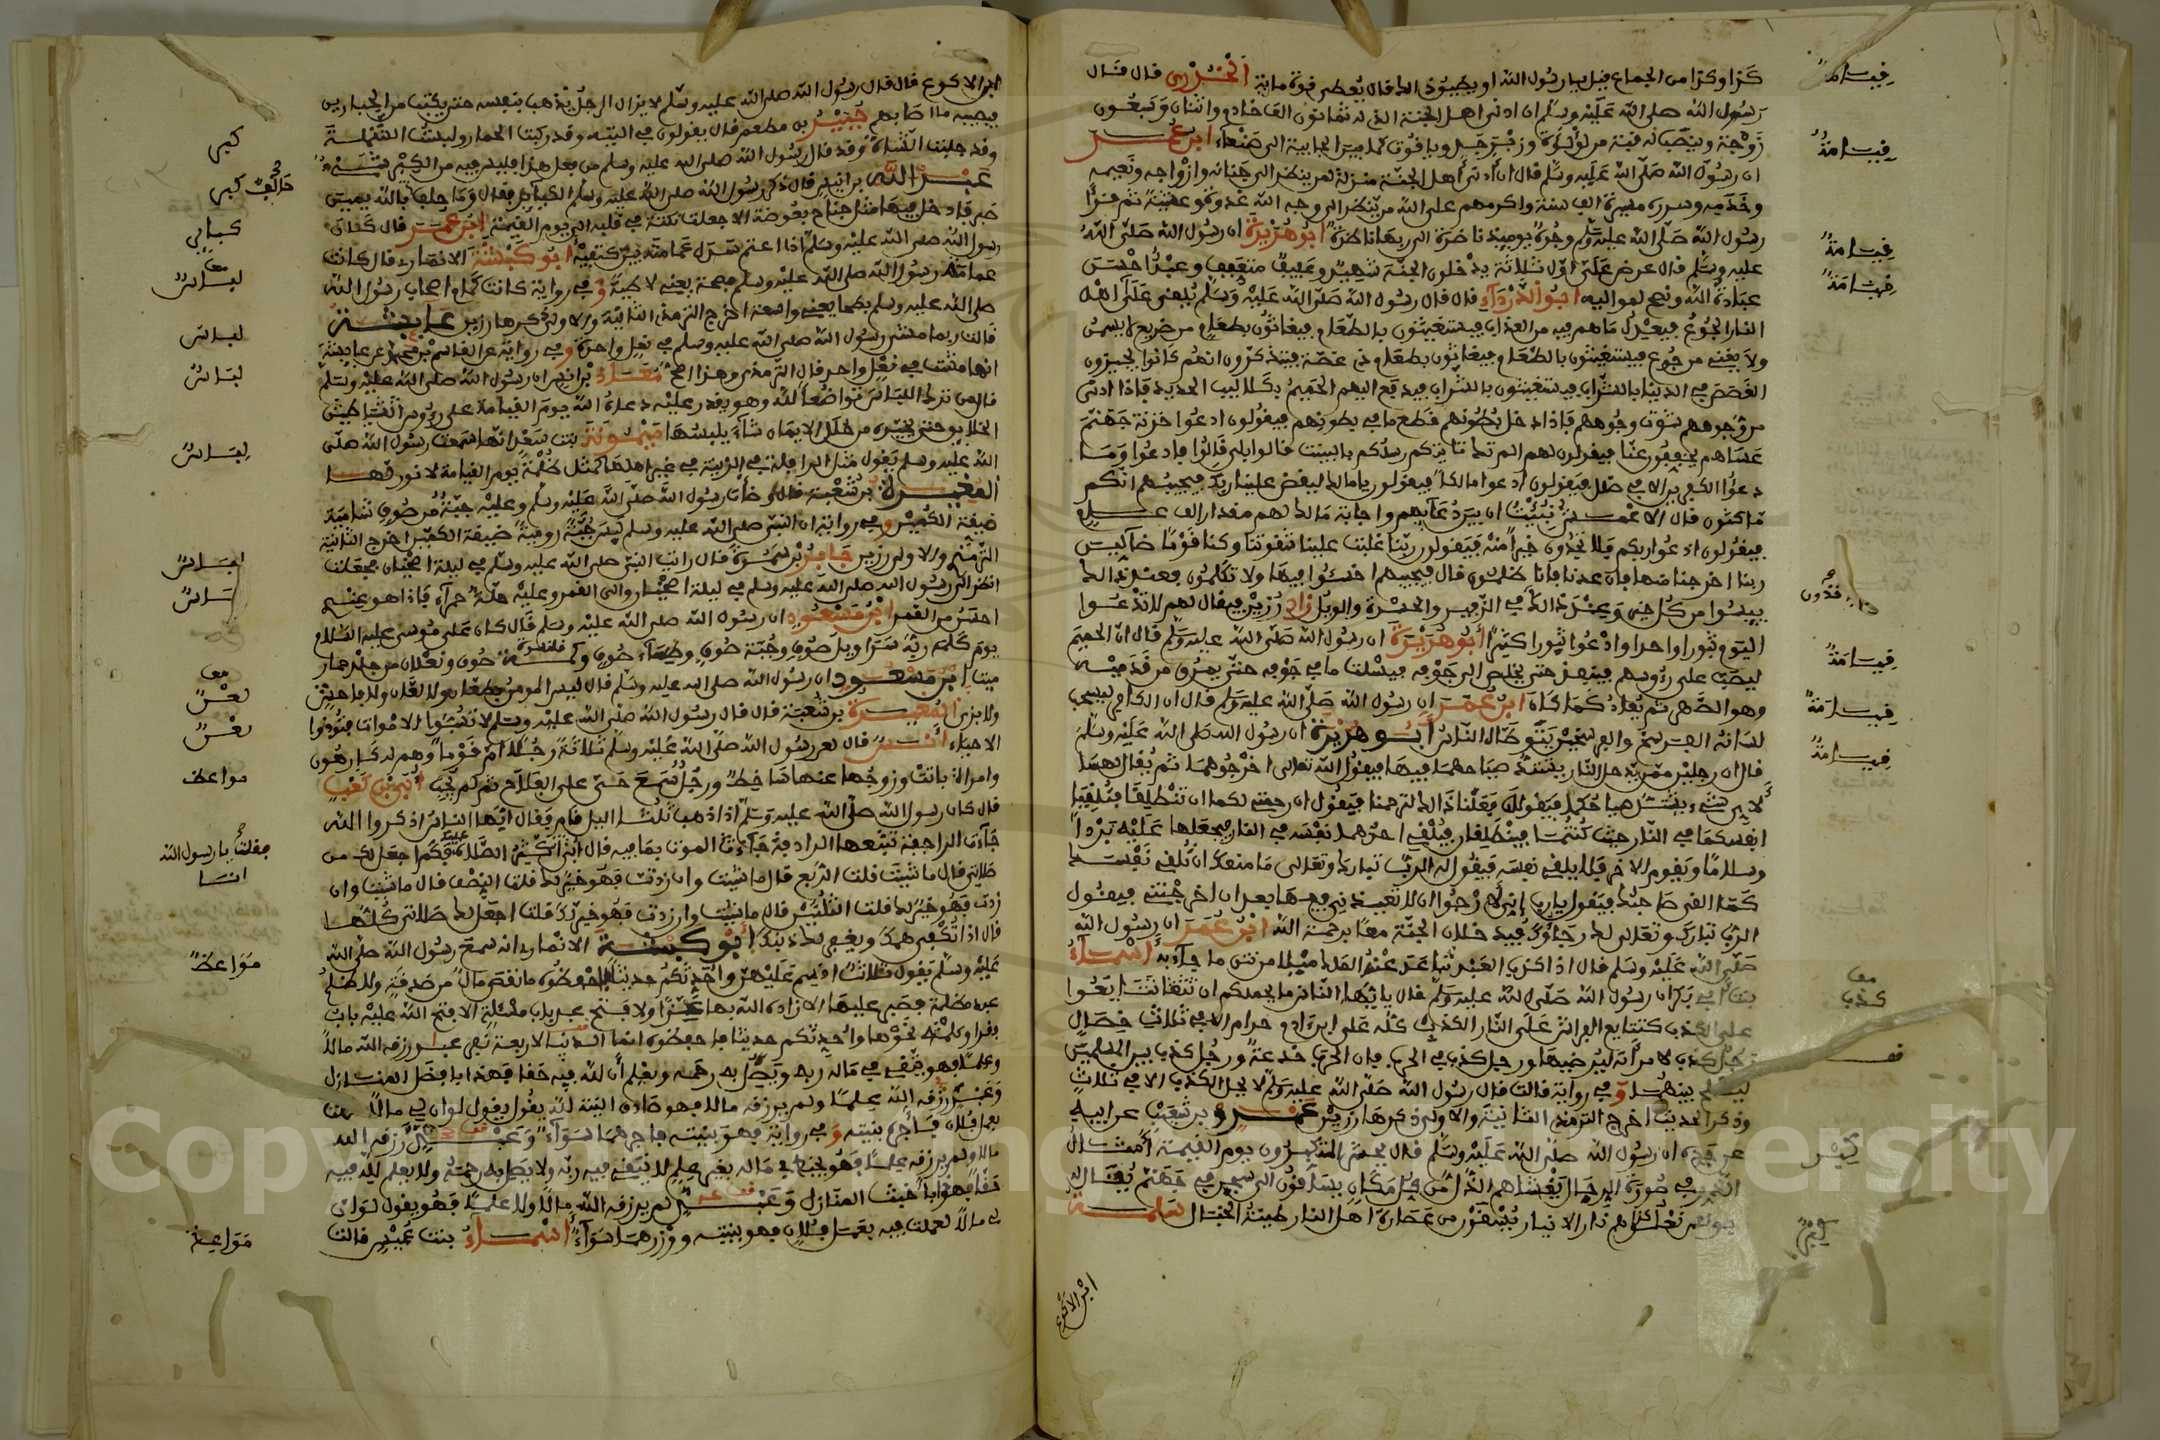 كذا وكذا من الجماع قيل يا رسول الله او يطيق ذلك قال يعطى قوة ماية الخدري قال قال
رسول الله صلى الله عليه وسلم ان ادنى اهل الجنة الذي له ثمانون الف خادم واثنان وسبعون
زوجة وينصب له قبة من لؤلؤة وزبرجد وياقوت كما بين الجابية الى صنعاء ابن عمر
ان رسول الله صلى الله عليه وسلم قال ان ادنى اهل الجنة منزلة لمن ينظر الى جنانه وازواجه ونعيمه
وخدمه وسرره مسيرة الف سنة واكرمهم على الله من ينظر الى وجه الله غدوة وعشية ثم قرأ
رسول الله صلى الله عليه وسلم وجوه يوميذ ناضرة الى ربها ناظرة ابو هريرة ان رسول الله صلى الله
عليه وسلم قال عرض علي اول ثلاثة يدخلون الجنة شهيد وعفيف متعفف وعبد احسن
عبادة الله ونصح لمواليه ابو الدرداء قال قال رسول الله صلى الله عليه وسلم يلقى على اهل
النار الجوع فيعدل ما هم فيه من العذاب فيستغيثون بالطعام فيغاثون بطعام من ضريع لا يسمن
ولا يغني من جوع فيستغيثون بالطعام فيغاثون بطعام ذي غصة فيتذكرون انهم كانوا يجيزون
الغصص في الدنيا بالشراب فيستغيثون بالشراب فيدفع اليهم الحميم بكلاليب الحديد فاذا ادنى
من وجوههم شوت وجوههم فاذا دخل بطونهم قطع ما في بطونهم فيقولون ادعوا خزنة جهنم
عساهم يخففون عنا فيقولون لهم الم تك تاتيكم رسلكم بالبينات قالوا بلى قالوا فادعوا وما
دعوا الكفرين الا في ضلل فيقولون ادعوا مالكا فيقولون يا مالك ليقض علينا ربك فيجيبهم انكم
ماكثون قال الاعمش نبئت ان بين دعايهم واجابة مالك لهم مقدار الف عام
فيقولون ادعوا ربكم فلا تجدون خيرا منه فيقولون ربنا غلبت علينا شقوتنا وكنا قوما ضالين
ربنا اخرجنا منها فان عدنا فانا ظلمون قال فيجيبهم اخسئوا فيها ولا تكلمون فعند ذلك
ييسوا من كل خير وعند ذلك في الزفير والحسرة والويل زاد رزين فيقال لهم لا تدعوا
اليوم ثبورا واحدا وادعوا ثبورا كثيرا ابو هريرة ان رسول الله صلى الله عليه وسلم قال ان الحميم
ليصب على رؤوسهم فينفذ حتى يخلص الى جوفه فيسلت ما في جوفه حتى يمرق من قدميه
وهو الصهر ثم يعاد كما كان ابن عمر ان رسول الله صلى الله عليه وسلم قال ان الكافر ليسحب
لسانه الفرسخ والفرسخين يتوطاه الناس ابو هريرة ان رسول الله صلى الله عليه وسلم
قال ان رجلين ممن يدخل النار يشتد صياحهما فيها فيقول الله تعالى اخرجوهما ثم يقال لهما
لاي شيء يشتد صياحكما فيقولان فعلنا ذلك لترحمنا فيقول ان رحمتي لكما ان تنطلقا فتلقيا
انفسكما في النار حيث كنتما فينطلقان فيلقي احدهما نفسه في النار فيجعلها عليه بردا
وسلاما ويقوم الاخر فلا يلقي نفسه فيقول له الرب تبارك وتعالى ما منعك ان تلقي نفسك
كما القى صاحبك فيقول يا رب اني لارجوا ان لا تعيدني فيها بعد ان اخرجتني فيقول
الرب تبارك وتعالى لك رجاؤك فيدخلان الجنة معا برحمة الله ابن عمر ان رسول الله
صلى الله عليه وسلم قال اذا كذب العبد تباعد عنه الملك ميلا من نتن ما جاء به اسماء
بنت ابي بكر ان رسول الله صلى الله عليه وسلم قال يا ايها الناس ما يحملكم ان تتتايعوا
على الكذب كتتايع الفراش على النار الكذب كله على ابن ادم حرام الا في ثلاث خصال
رجل كذب لامرأته ليرضيها ورجل كذب في الحرب فان الحرب خدعة ورجل كذب بين المسلمين
ليصلح بينهما وفي رواية قالت قال رسول الله صلى الله عليه وسلم لا يحل الكذب الا في ثلاث
وذكر الحديث اخرج الترمذي الثانية والاولى ذكرها رزين عمرو بن شعيب عن ابيه
عن جده ان رسول الله صلى الله عليه وسلم قال يحشر المتكبرون يوم القيمة امثال
الذر في صورة الرجال يغشاهم الذل من كل مكان يساقون الى سجن في جهنم يقال له
بولس تعلوهم نار الانيار يسقون من عصارة اهل النار طينة الخبال سلمة
ابن الاكوع
قيامة
قيامة
قيامة
قيامة
قيامة
قيامة
قيامة
معا
كذب
كبر
كبر
ابن الاكوع قال قال رسول الله صلى الله عليه وسلم لا يزال الرجل يذهب بنفسه حتى يكتب من الجبارين
فيصيبه ما اصابهم جبير بن مطعم قال يقولون في التيه وقد ركبت الحمار ولبست الشملة
وقد حلبت الشاة وقد قال رسول الله صلى الله عليه وسلم من فعل هذا فليس فيه من الكبر شيء
عبد الله بن انيس قال ذكر رسول الله صلى الله عليه وسلم الكبائر فقال وما حلف بالله يمين
صبر فادخل فيها مثل جناح بعوضة الا جعلت نكتة في قلبه الى يوم القيمة ابن عمر قال كان
رسول الله صلى الله عليه وسلم اذا اعتم سدل عمامته بين كتفيه ابو كبشة الانماري قال كانت
صلى الله عليه وسلم بطحا يعني واسعة اخرج الترمذي الثانية والاولى ذكرها رزين عايشة
قالت ربما مشى رسول الله صلى الله عليه وسلم في نعل واحدة وفي رواية عن القاسم بن محمد عن عايشة
انها مشت في نعل واحد قال الترمذي وهذا اصح معاذ بن انس ان رسول الله صلى الله عليه وسلم
قال من ترك اللباس تواضعا لله وهو يقدر عليه دعاه الله يوم القيامة على رؤوس
الخلايق حتى يخيره من حلل الايمان شاء يلبسها ميمونة بنت سعد انها سمعت رسول الله صلى
الله عليه وسلم يقول مثل الرافلة في الزينة في غير اهلها كمثل ظلمة يوم القيامة لا نور لها
المغيرة بن شعبة قال وضات رسول الله صلى الله عليه وسلم وعليه جبة من صوف شامية
ضيقة الكمين وفي رواية ان النبي صلى الله عليه وسلم لبس جبة رومية ضيقة الكمين اخرج الثانية
الترمذي والاولى رزين جابر بن سمرة قال رايت النبي صلى الله عليه وسلم في ليلة اضحيان فجعلت
انظر الى رسول الله صلى الله عليه وسلم والى القمر وعليه حلة حمراء فاذا هو عندي
احسن من القمر ابن مسعود ان رسول الله صلى الله عليه وسلم قال كان على موسى عليه السلام
يوم كلمه ربه سراويل صوف وجبة صوف وكساء صوف وكمة صوف ونعلان من جلد حمار
ميت ابن مسعود ان رسول الله صلى الله عليه وسلم قال ليس المومن بطعان ولا لعان ولا فاحش
ولا بذي المغيرة بن شعبة قال قال رسول الله صلى الله عليه وسلم لا تسبوا الاموات فتوذوا
الاحياء انس قال لعن رسول الله صلى الله عليه وسلم ثلاثة رجلا ام قوما وهم له كارهون
وامراة باتت وزوجها عليها ساخط ورجل سمع حي على الفلاح ثم لم يجب ابي بن كعب
قال كان رسول الله صلى الله عليه وسلم اذا ذهب ثلثا الليل قام فقال ايها الناس اذكروا الله
جاءت الراجفة تتبعها الرادفة جاء الموت بما فيه قال ابي اني اكثر الصلاة عليك فكم اجعل لك من
صلاتي قال ما شيت قلت الربع قال ما شيت وان زدت فهو خير لك قلت النصف قال ما شيت وان
زدت فهو خير لك قلت الثلثين قال ما شيت وان زدت فهو خير لك قلت اجعل لك صلاتي كلها
قال اذا تكفى همك ويغفر لك ذنبك ابو كبشة الانماري انه سمع رسول الله صلى الله
عليه وسلم يقول ثلاث اقسم عليهن واحدثكم حديثا فاحفظوه ما نقص مال من صدقة ولا ظلم
عبد مظلمة فصبر عليها الا زاده الله بها عزا ولا فتح عبد باب مسئلة الا فتح الله عليه باب
فقر او كلمة نحوها واحدثكم حديثا فاحفظوه انما الدنيا لاربعة نفر عبد رزقه الله مالا
وعلما فهو يتقي في ماله ربه ويصل به رحمه ويعلم ان لله فيه حقا فهذا بافضل المنازل
وعبد رزقه الله علما ولم يرزقه مالا فهو صادق النية لله يقول لو ان لي مالا لعملت
بعمل فلان فاجره بنيته وفي رواية فهو بنيته فاجرهما سواء وعبد رزقه الله
مالا ولم يرزقه علما فهو يخبط في ماله بغير علم لا يتقي فيه ربه ولا يصل به رحمه ولا يعلم لله فيه
حقا فهذا باخبث المنازل وعبد لم يرزقه الله مالا ولا علما فهو يقول لو ان
لي مالا لعملت فيه بعمل فلان فهو بنيته ووزرهما سواء اسماء بنت عميس قالت
كبر
كبر
كبائر
معا
لباس
لباس
لباس
لباس
لباس
لباس
معا
لعن
لعن
مواعظ
فقلت يا رسول الله
مواعظ
مواعظ